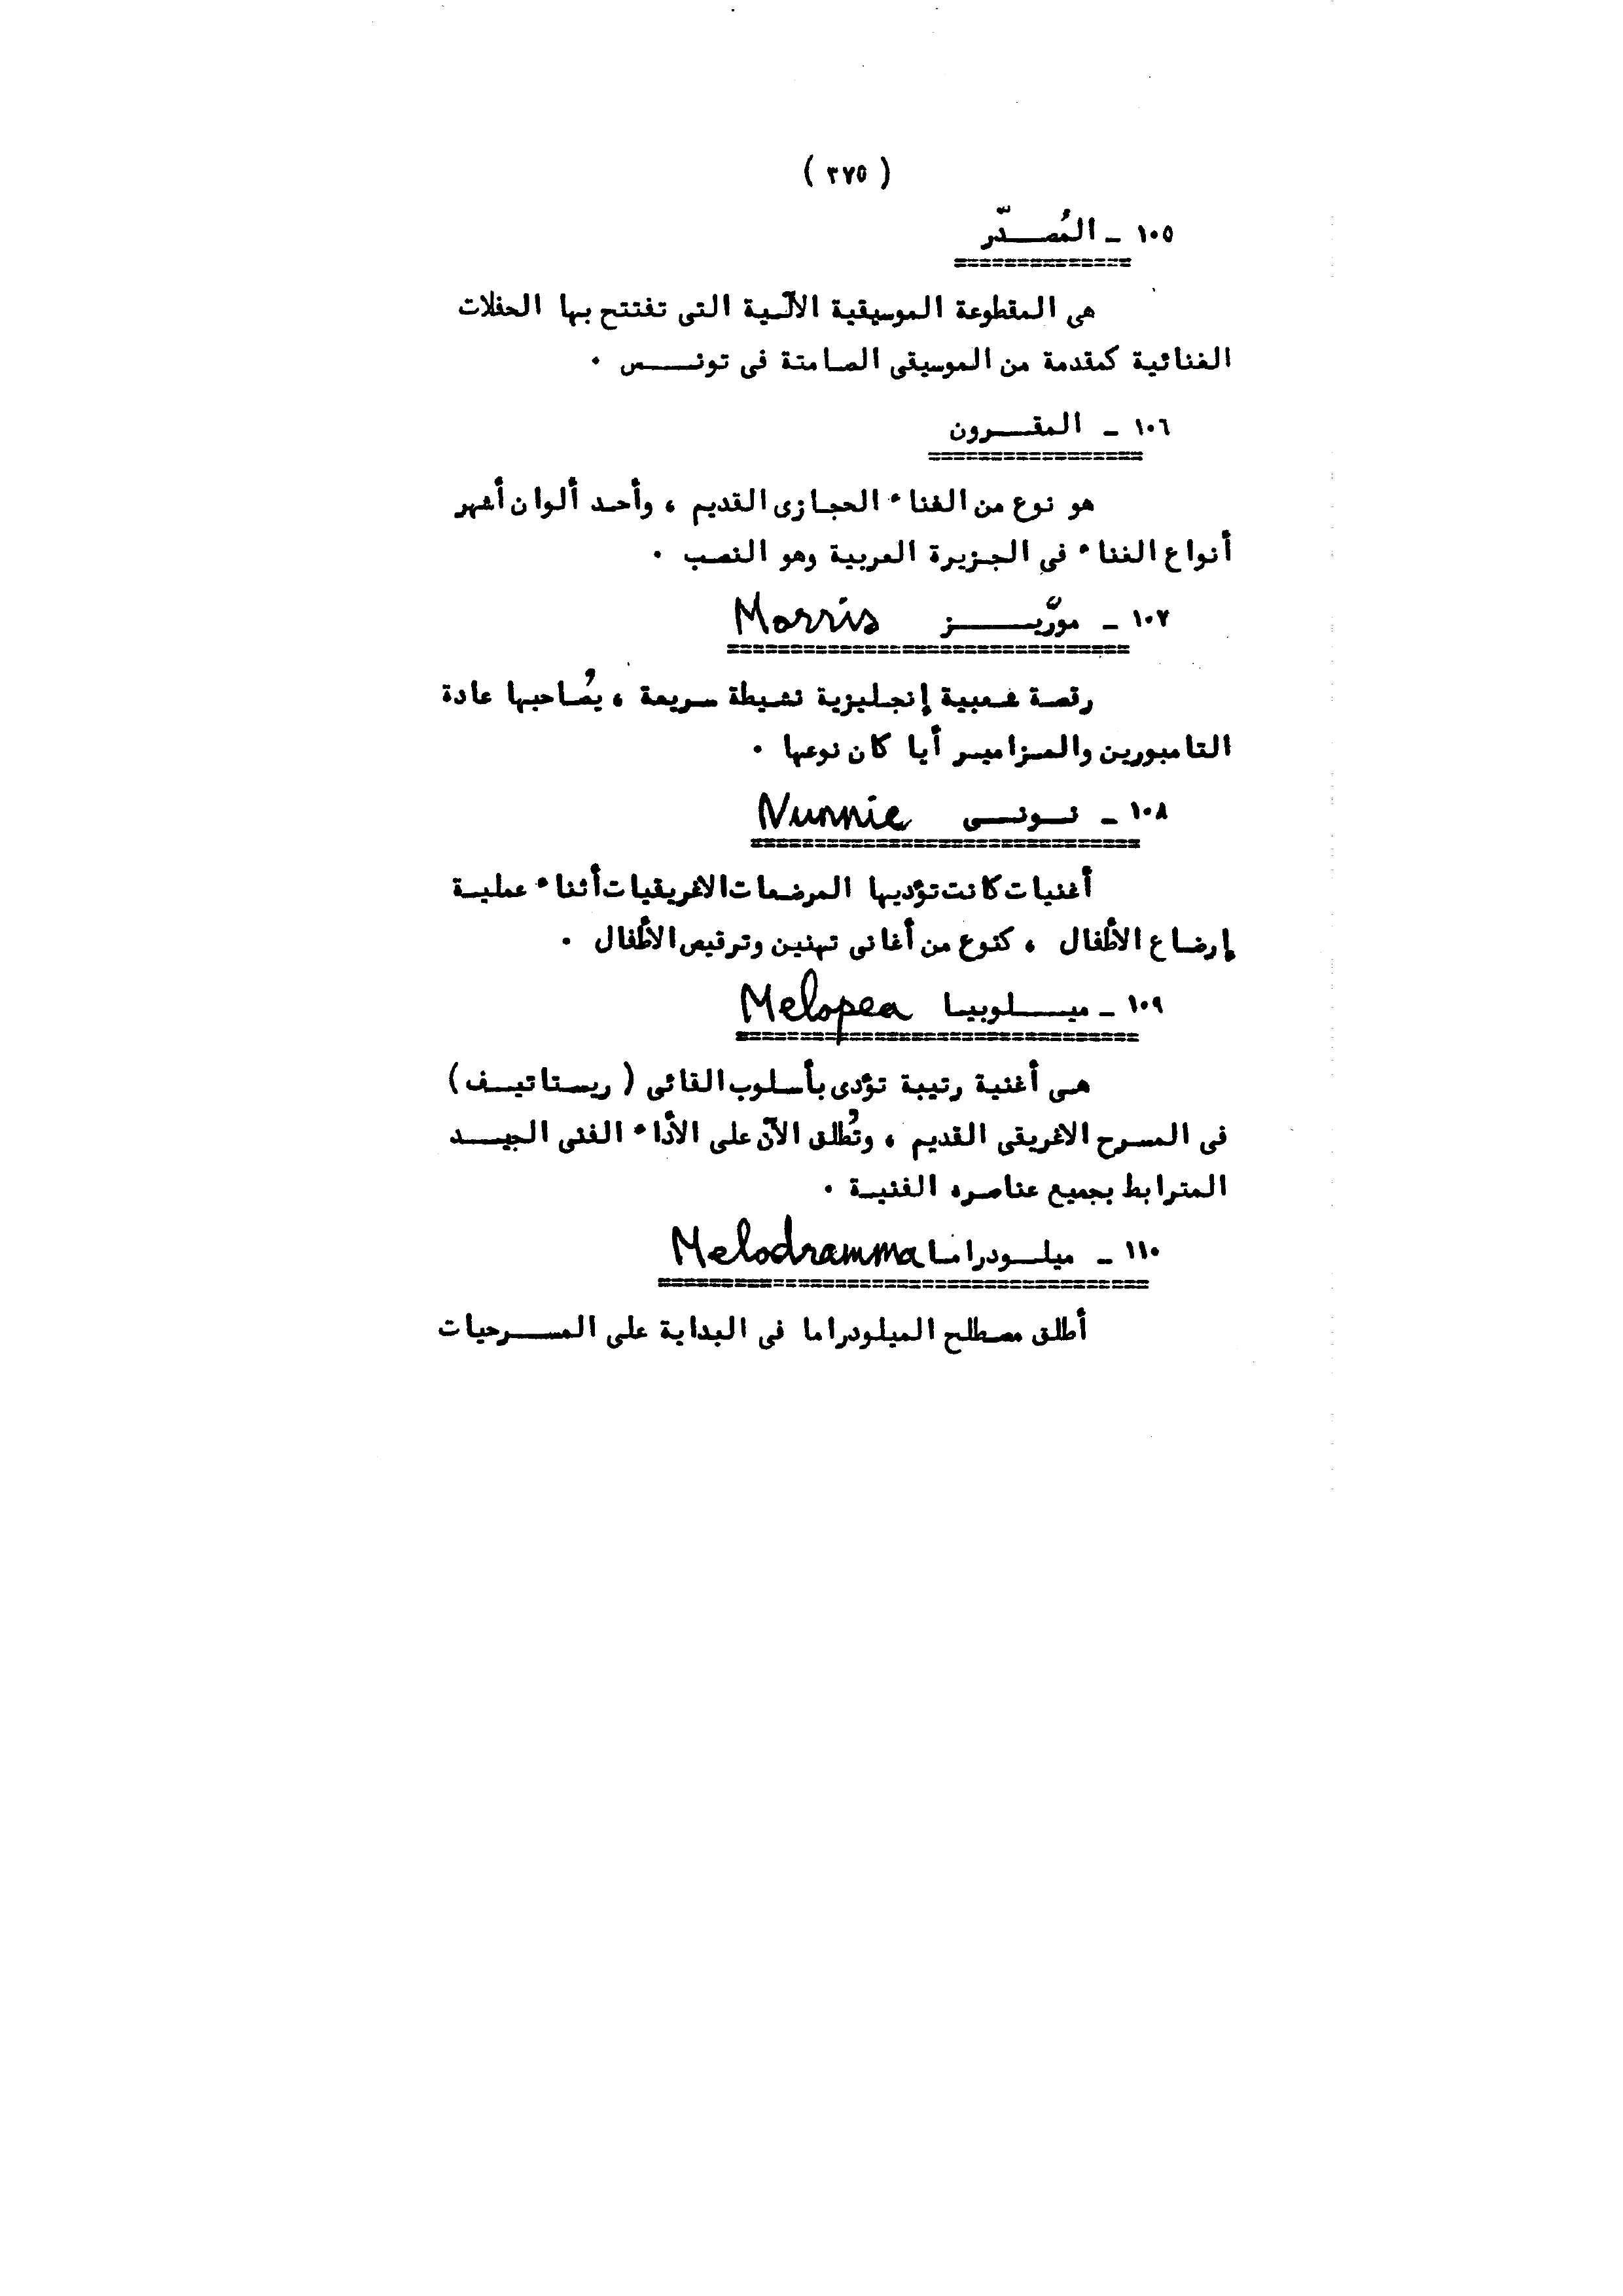 ( ٣٧٥ )
١٠٥ ـ المُصــدّر
هى المقطوعة الموسيقية الآلـية التى تفتتح بها الحفلات
الغنائية كمقدمة من الموسيقى الصامتة فى تونــس ٠
١٠٦ ـ المقــرون
هو نوع من الغناء الحجازى القديم ، وأحد ألوان أشهر
أنواع الغناء فى الجزيرة العربية وهو النصب ٠
١٠٧ ـ مورّيــز Morris
رقصة شعبية إنجليزية نشيطة سريعة ، يُصاحبها عادة
التامبورين والمزامير أيا كان نوعها ٠
١٠٨ ـ نــونــى Nunnie
أغنيات كانت تؤديها المرضعات الاغريقيات أثناء عملية
إرضاع الأطفال ، كنوع من أغانى تهنين وترقيص الأطفال ٠
١٠٩ ـ ميــلوبيا Melopea
هى أغنية رتيبة تؤدى بأسلوب القائى ( ريستاتيف )
فى المسرح الاغريقى القديم ، وتُطلق الآن على الأداء الفنى الجيــد
المترابط بجميع عناصره الفنية ٠
١١٠ ـ ميلــودراما Melodramma
أطلق مصطلح الميلودراما فى البداية على المســرحيات